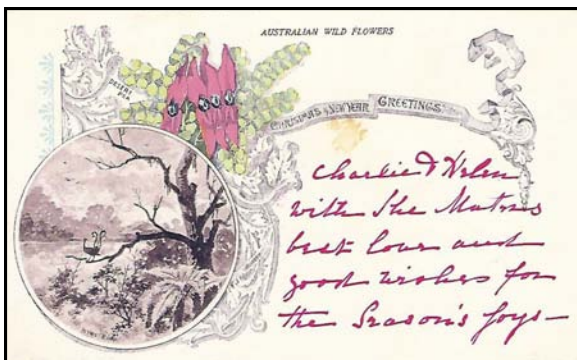 AUSTRALIAN WILD FLOWERS
DESERT PEA
CHRISTMAS & NEW YEAR GREETINGS
Charlie & Helen
with the
best love and
good wishes for
the Season's Joys —